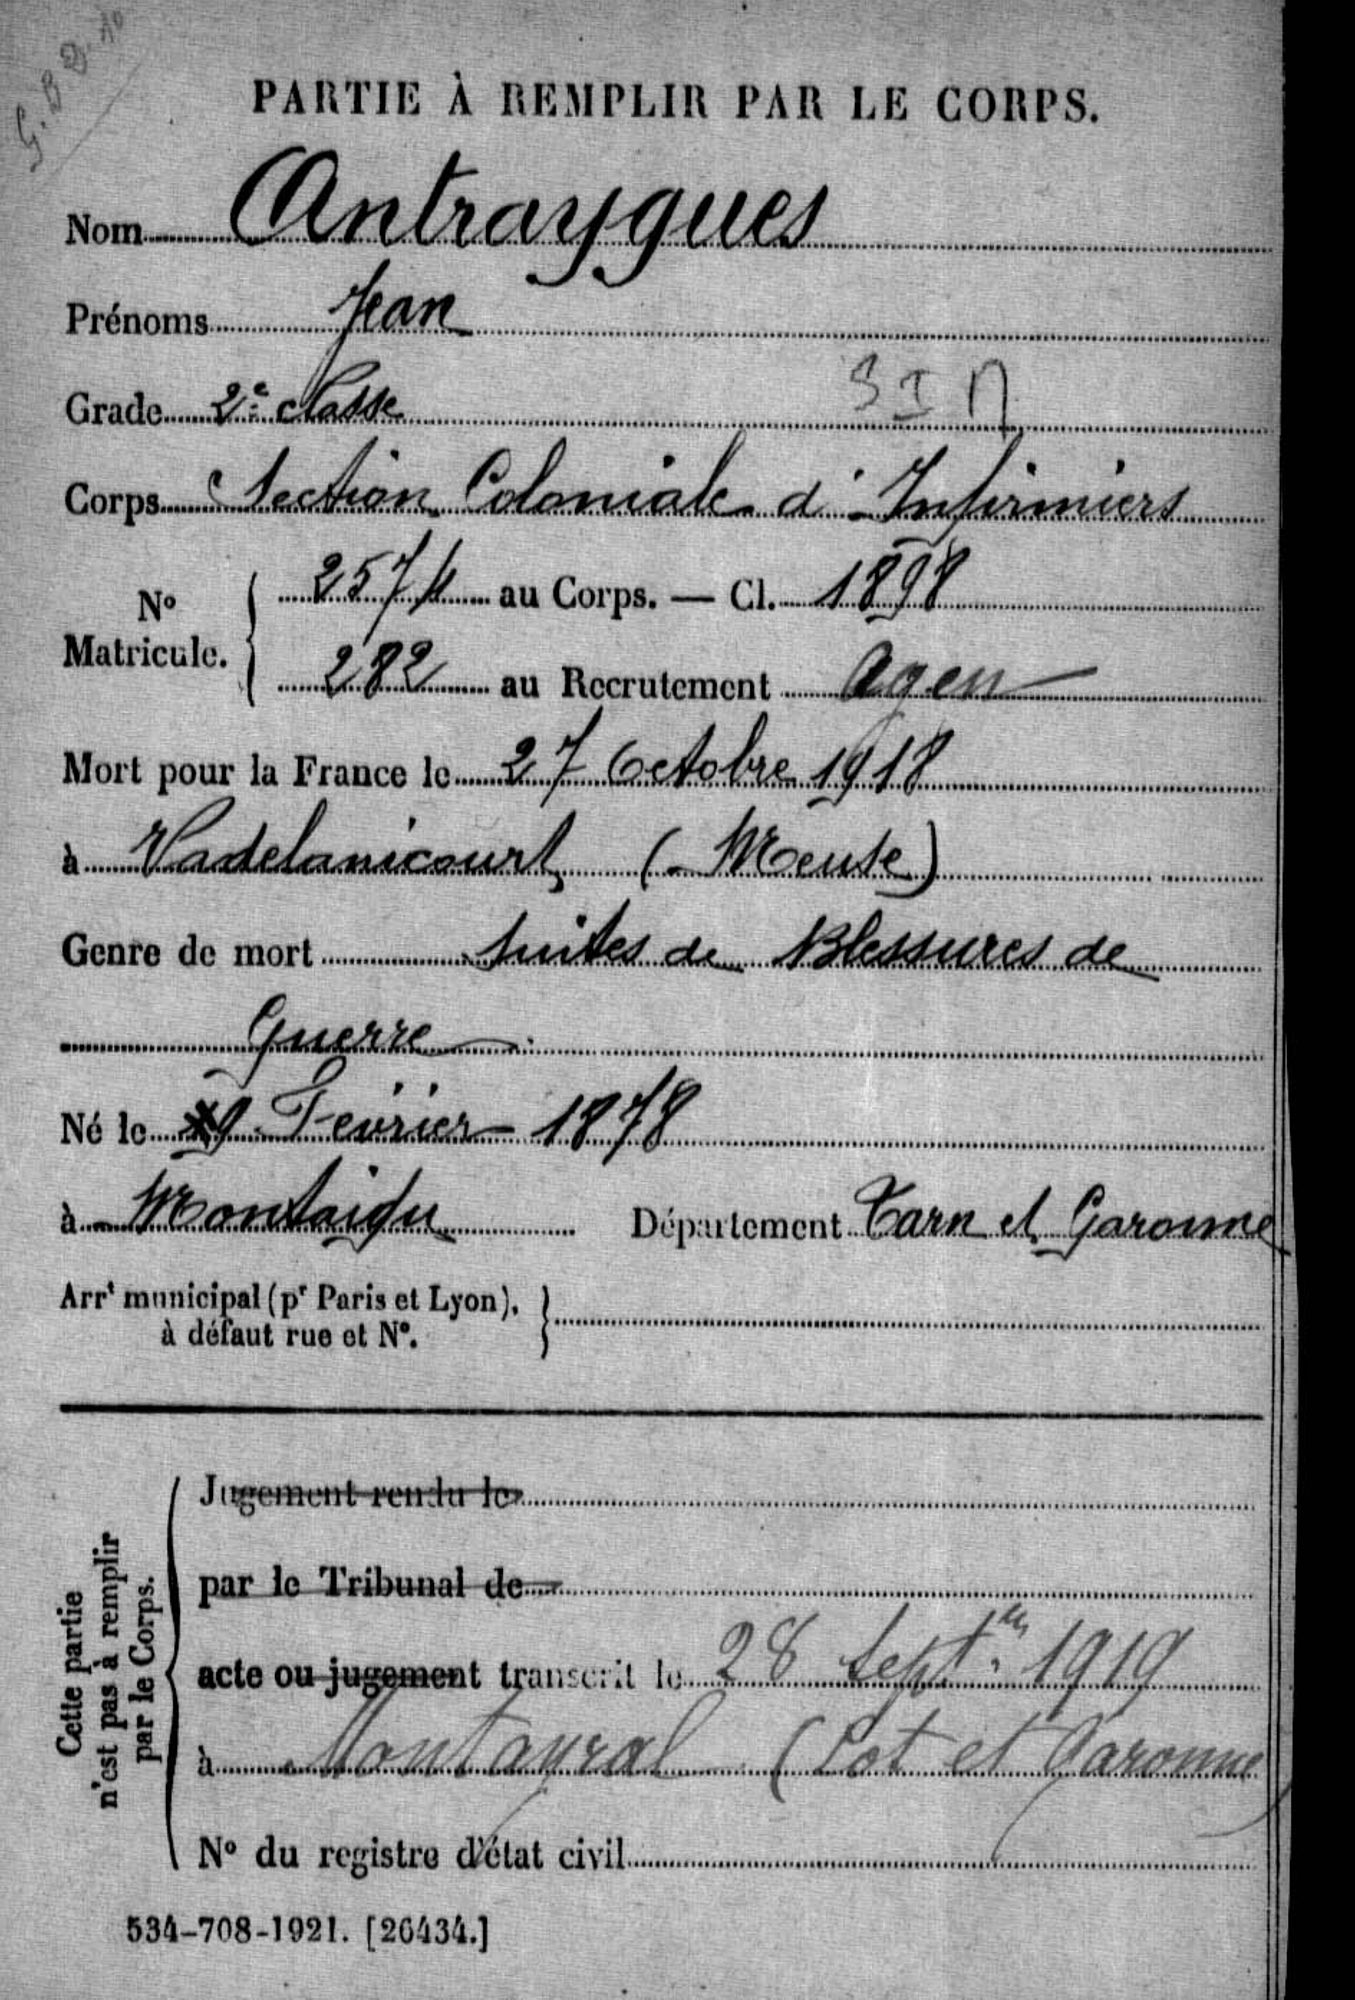 G.B.D. 10
PARTIE À REMPLIR PAR LE CORPS.
Nom Antraygues
Prénoms Jean
Grade 2e classe
Corps Section Coloniale d'Infirmiers
No Matricule. 2574 au Corps. — Cl. 1898
282 au Recrutement Agen
Mort pour la France le 27 Octobre 1918
à Vadelanicourt (Meuse)
Genre de mort Suites de Blessures de
Guerre
Né le 9 Fevrier 1878
à Montaigu Département Tarn et Garonne
Arrt municipal (pr Paris et Lyon),
à défaut rue et No.
Cette partie
n'est pas à remplir
par le Corps.
Jugement rendu le
par le Tribunal de
acte ou jugement transcrit le 28 Septre 1919
à Montayral (Lot et Garonne)
No du registre d'état civil
534-708-1921. [26434.]